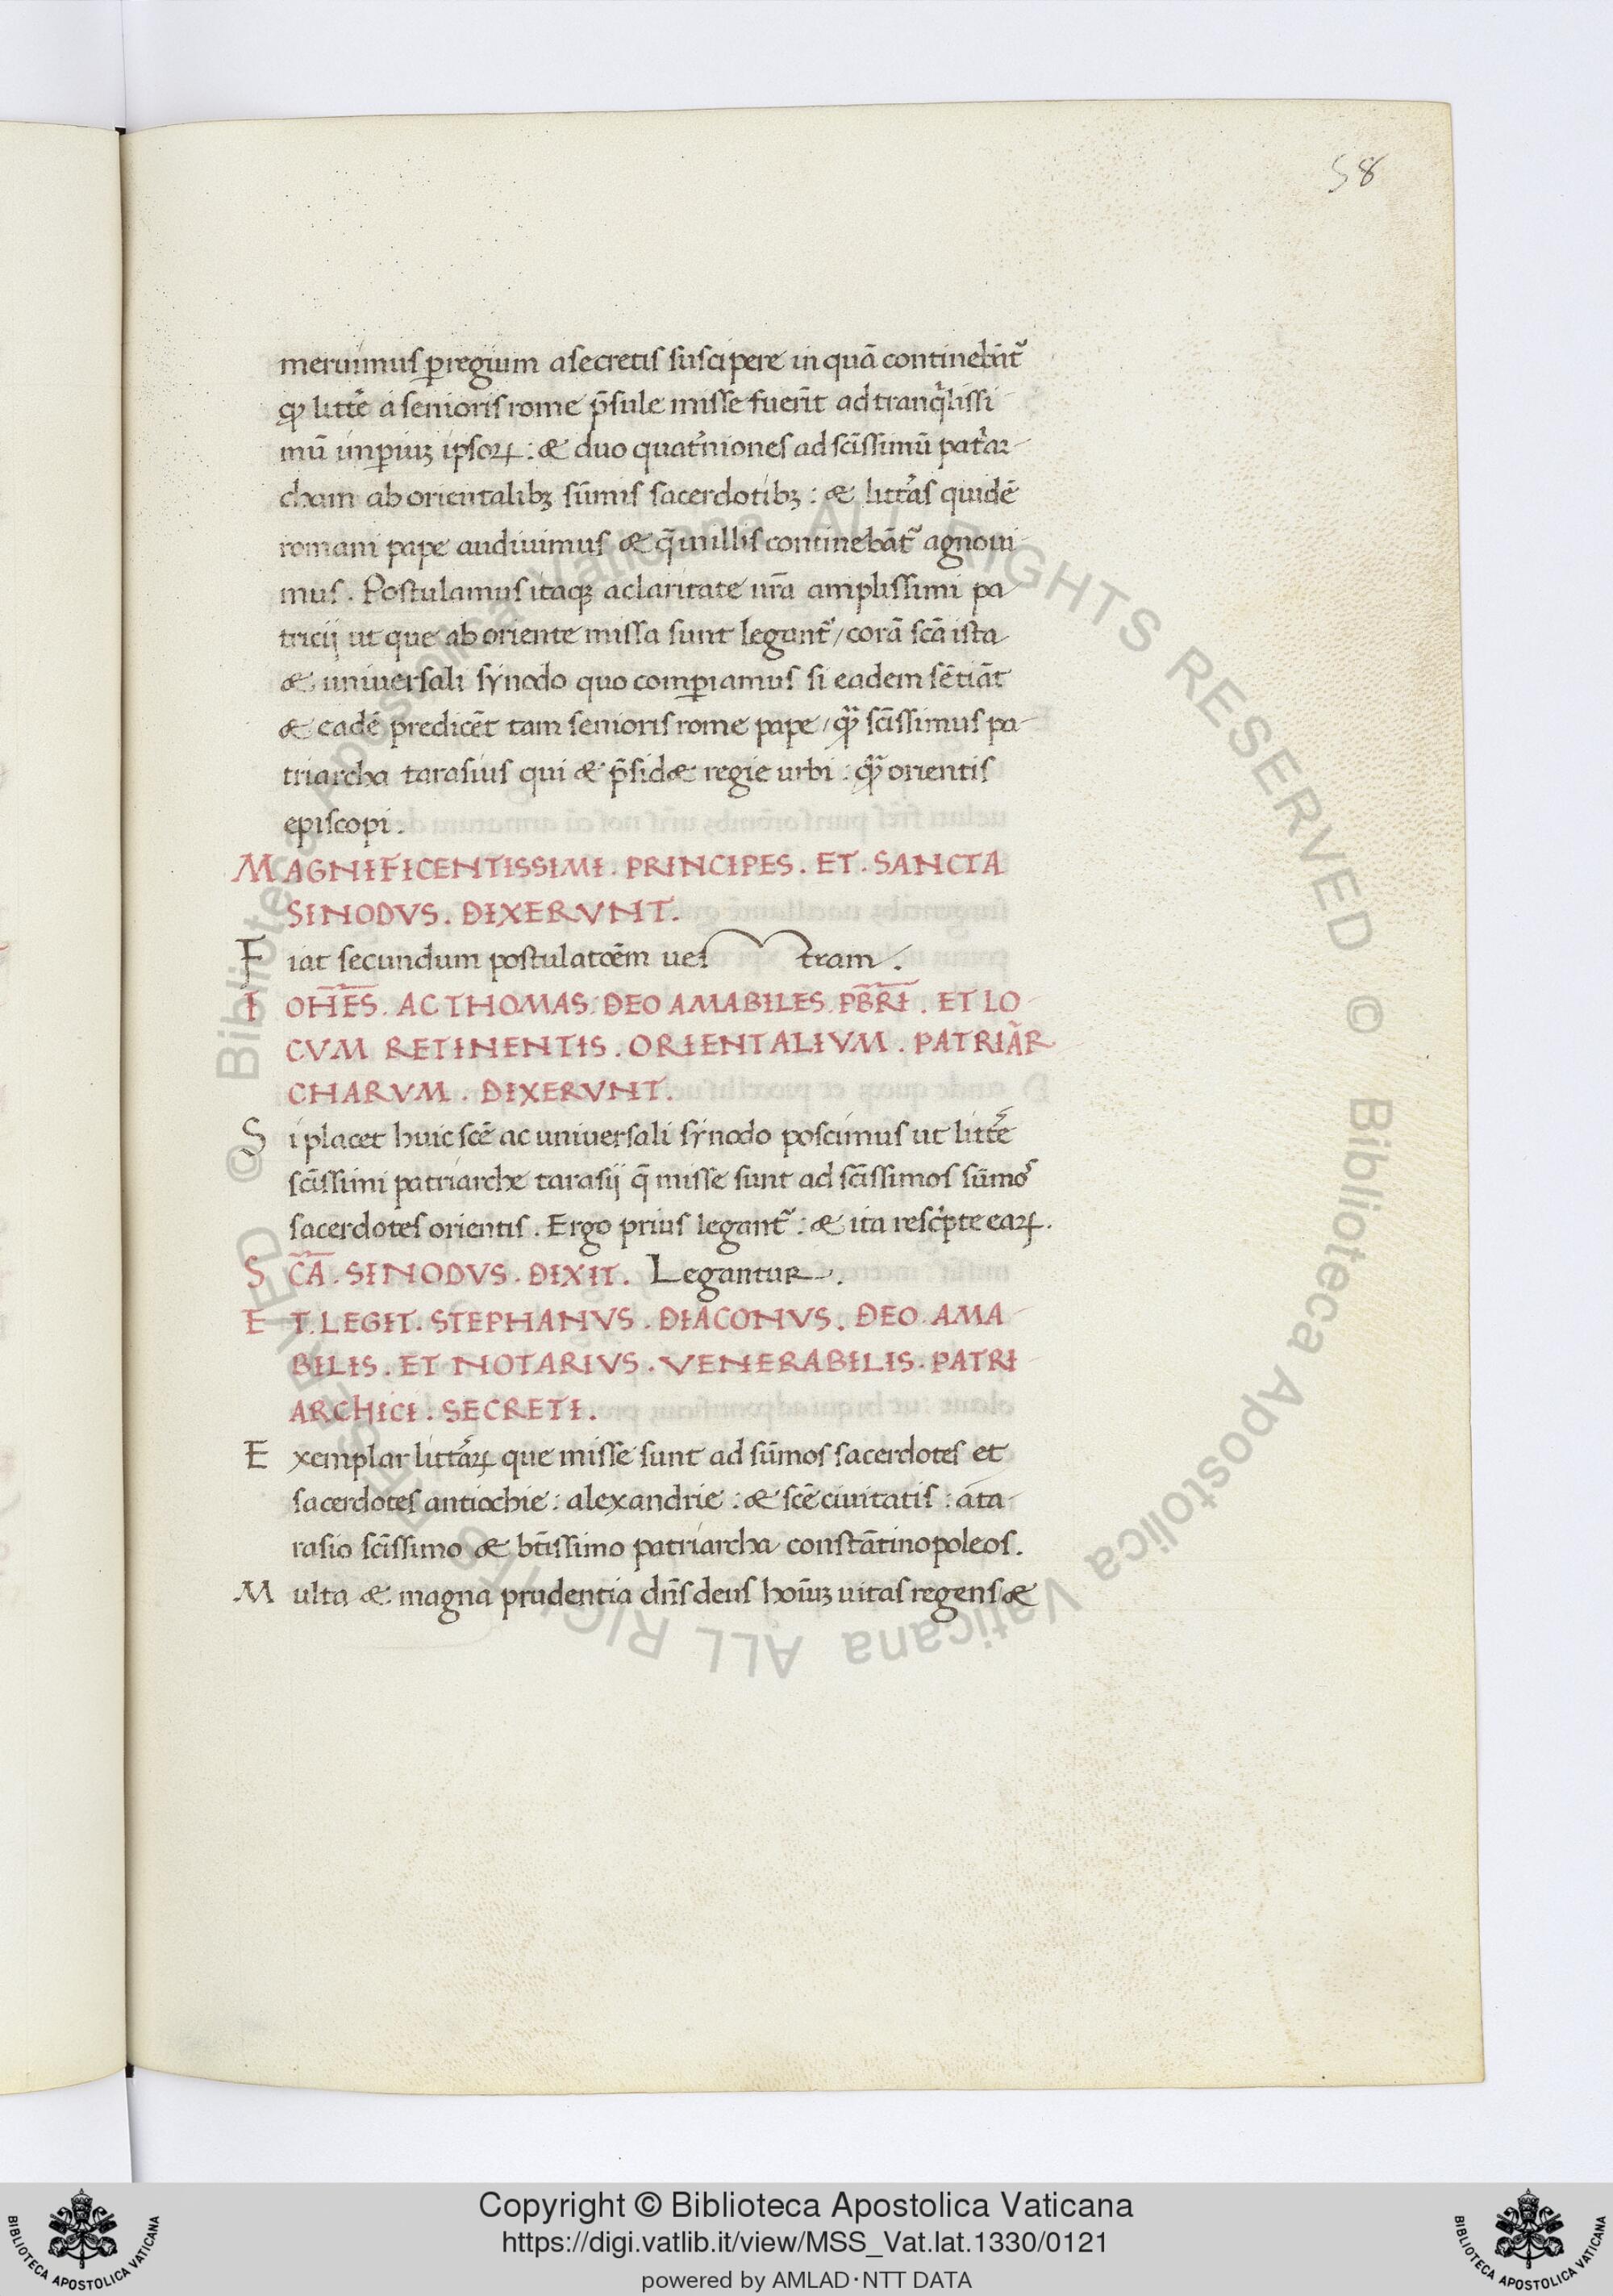 58
meruimus ꝑregium asecretis suscipere in quā continebāt᷑
ꝙ litte᷑ a senioris rome p̄sule misse fuer̄t ad tranq̇lissi
mū imꝑiuꝫ ipsoꝝ : & duo quat᷑niones ad sc̄issimū pat᷑iar-
cham ab orientalibꝫ sūmis sacerdotibꝫ : & litt᷑as quidē
romani pape audiuimus & q̄ in illis continebāt᷑ agnoui
mus . Postulamus itaqꝫ a claritate ur̄a amplissimi pa
tricij ut que ab oriente missa sunt legant᷑ / corā sc̄a ista
& universali synodo quo comꝑiamus si eadem sētiāt
& eadē predicēt tam senioris rome pape / qꝫ sc̄issimus pa
triarcha tarasius qui & p̄sid& regie urbi : qꝫ orientis
episcopi .
MAGNIFICENTISSIMI . PRINCIPES . ET . SANCTA
SINODVS . DIXERVNT .
Fiat secundum postulatōēm ues tram .
IOH̄ES . AC THOMAS . DEO AMABILES . PB̄RI . ET LO
CVM RETINENTIS . ORIENTALIVM . PATRIĀR
CHARVM . DIXERVNT .
Si placet huic sc̄e ac universali synodo poscimus ut litte᷑
sc̄issimi patriarche tarasij q̄ misse sunt ad sc̄issimos sūmos
sacerdotes orientis . Ergo prius legant᷑ : & ita resċpte eaꝝ .
SC̄A . SINODVS . DIXIT . Legantur .
ET . LEGIT . STEPHANVS . DIACONVS . DEO . AMA
BILIS . ET NOTARIVS . VENERABILIS . PATRI
ARCHICI . SECRETI .
Exemplar litt᷑aꝝ que misse sunt ad sūmos sacerdotes et
sacerdotes antiochie : alexandrie : & sc̄e ciuitatis : a ta
rasio sc̄issimo & bt̄issimo patriarcha constātinopoleos .
Multa & magna prudentia dn̄s deus hoīuꝫ uitas regens &
© Biblioteca Apostolica Vaticana ALL RIGHTS RESERVED © Biblioteca Apostolica Vaticana ALL RIGHTS RESERVED
Copyright © Biblioteca Apostolica Vaticana
https://digi.vatlib.it/view/MSS_Vat.lat.1330/0121
powered by AMLAD · NTT DATA
BIBLIOTECA APOSTOLICA VATICANA
BIBLIOTECA APOSTOLICA VATICANA